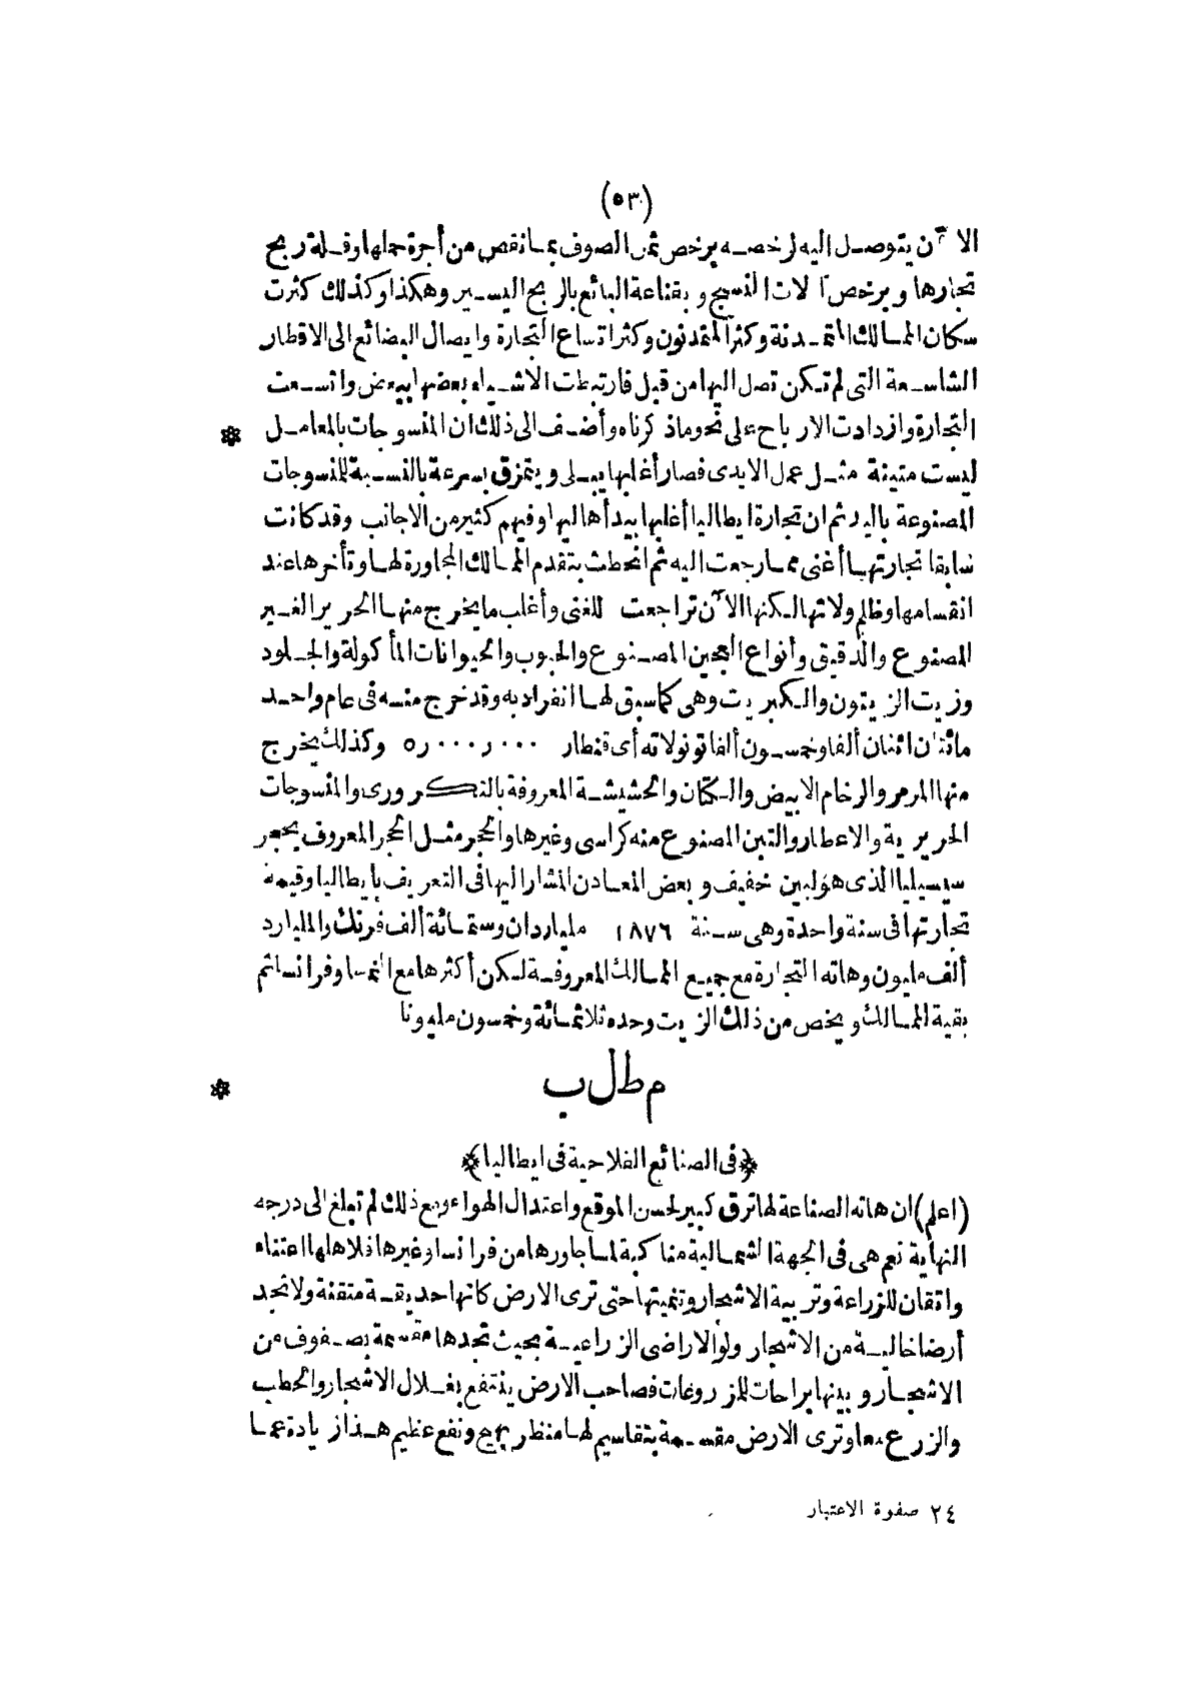 (٥٣)
الآن يتوصل اليه لرخصه برخص ثمن الصوف بما نقص من أجرة حملها وقلة ربح
تجارها وبرخص آلات النسيج وبقناعة البائع بالربح اليسير وهكذا وكذلك كثرت
سكان الممالك المتمدنة وكثر المتمدنون وكثر اتساع التجارة وايصال البضائع الى الاقطار
الشاسعة التى لم تكن تصل اليها من قبل فارتبطت الاشياء بعضها ببعض واتسعت
التجارة وازدادت الارباح على نحو ما ذكرناه وأضف الى ذلك ان المنسوجات بالمعامل *
ليست متينة مثل عمل الايدى فصار أغلبها يبلى ويتمزق بسرعة بالنسبة للمنسوجات
المصنوعة باليد ثم ان تجارة ايطاليا أغلبها بيد أهاليها وفيهم كثير من الاجانب وقد كانت
سابقا تجارتها أغنى مما رجعت اليه ثم انحطت بتقدم الممالك المجاورة لها وتأخرها عند
انقسامها وظلم ولاتها لكنها الآن تراجعت للغنى وأغلب ما يخرج منها الحرير الغير
المصنوع والدقيق وأنواع العجين المصنوع والحبوب والحيوانات المأكولة والجلود
وزيت الزيتون والكبريت وهى كما سبق لها انفراد به وقد خرج منه فى عام واحد
مائتان اثنان ألفا وخمسون ألفا تونولاته أى قنطار ٥٫٠٠٠٫٠٠٠ وكذلك يخرج
منها المرمر والرخام الابيض والكتان والحشيشة المعروفة بالتكرورى والمنسوجات
الحريرية والاعطار والتبن المصنوع منه كراسى وغيرها والحجر مثل الحجر المعروف بحجر
سيسيليا الذى هو لبين خفيف وبعض المعادن المشار اليها فى التعريف بايطاليا وقيمة
تجارتها فى سنة واحدة وهى سنة ١٨٧٦ ملياردان وستمائة ألف فرنك والمليارد
ألف مليون وهاته التجارة مع جميع الممالك المعروفة لكن أكثرها مع النمسا وفرانسا ثم
بقية الممالك ويخص من ذلك الزيت وحده ثلاثمائة وخمسون مليونا
مطلب *
﴿فى الصنائع الفلاحية فى ايطاليا﴾
(اعلم) ان هاته الصناعة لها ترق كبير لحسن الموقع واعتدال الهواء ومع ذلك لم تبلغ الى درجة
النهاية نعم هى فى الجهة الشمالية مناكبة لما جاورها من فرانسا وغيرها فلاهلها اعتناء
واتقان للزراعة وتربية الاشجار وتنميتها حتى ترى الارض كانها حديقة متقنة ولا تجد
أرضا خالية من الاشجار ولو الاراضى الزراعية بحيث تجدها مقسمة بصفوف من
الاشجار وبينها براحات للمزروعات فصاحب الارض ينتفع بغلال الاشجار والحطب
والزرع معا وترى الارض مقسمة بتقاسيم لها منظر بهج ونفع عظيم هذا زيادة عما
٢٤ صفوة الاعتبار